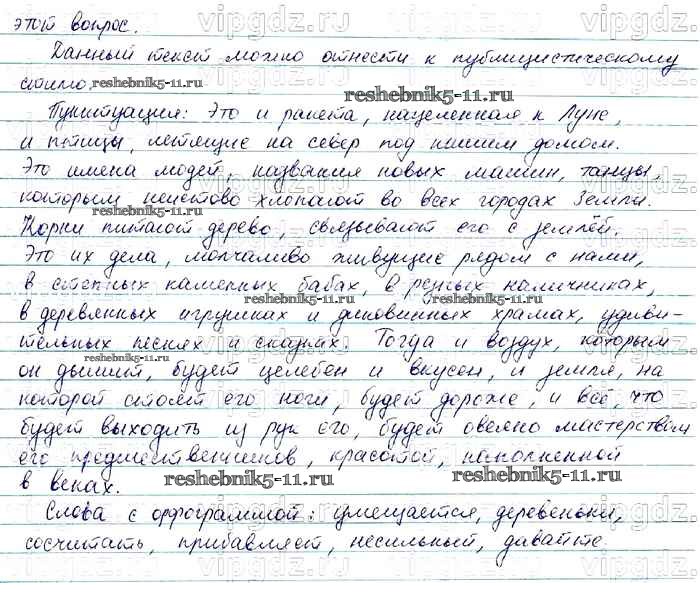 этот вопрос.
Данный текст можно отнести к публицистическому
стилю.
Пунктуация: Это и ракета, нацеленная к Луне,
и птицы, летящие на север под нашим домом.
Это имена людей, названия новых машин, танцы,
которым неистово хлопают во всех городах Земли.
Корни питают дерево, связывают его с землёй.
Это их дела, молчаливо живущие рядом с нами,
в степных каменных бабах, в резных наличниках,
в деревянных игрушках и диковинных храмах, удиви-
тельных песнях и сказках. Тогда и воздух, которым
он дышит, будет целебен и вкусен, и земля, на
которой стоят его ноги, будет дороже, и всё, что
будет выходить из рук его, будет овеяно мастерством
его предшественников, красотой, накопленной
в веках.
Слова с орфограммой: умещается, деревеньки,
сосчитать, прибавляет, несильный, давайте.
reshebnik5-11.ru
vipgdz.ru